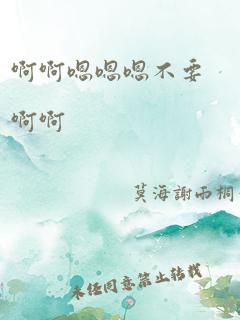 啊啊嗯嗯嗯不要
啊啊
莫海謝而桐
未经同意禁止转载